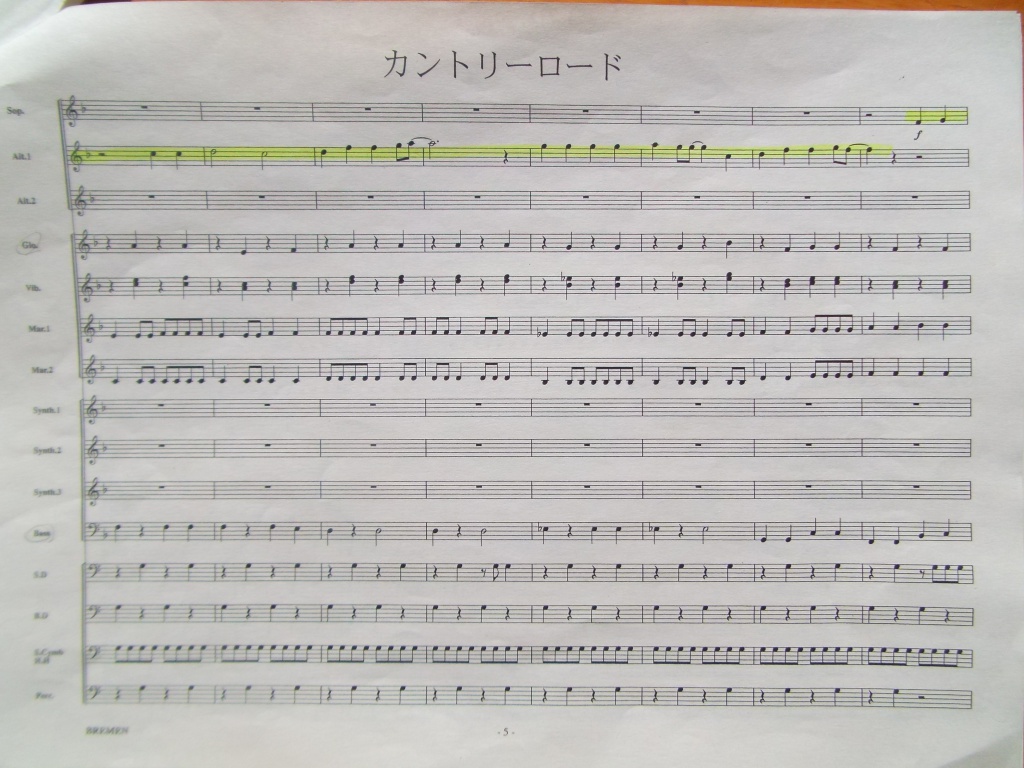 カントリーロード
Sop.
f
Alt.1
Alt.2
Glo.
Vib.
Mar.1
Mar.2
Synth.1
Synth.2
Synth.3
Bass
S.D
B.D
Perc.
BREMEN
- 5 -